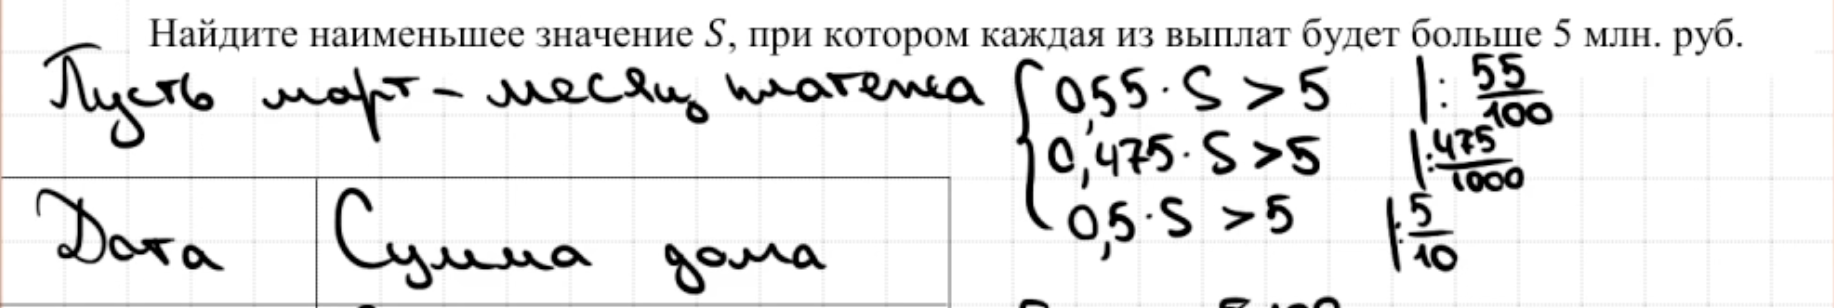 Найдите наименьшее значение S, при котором каждая из выплат будет больше 5 млн. руб.
Пусть март - месяц платежа
0,55 · S > 5 |: 55/100
0,475 · S > 5 |: 475/1000
0,5 · S > 5 |: 5/10
Дата Сумма дома